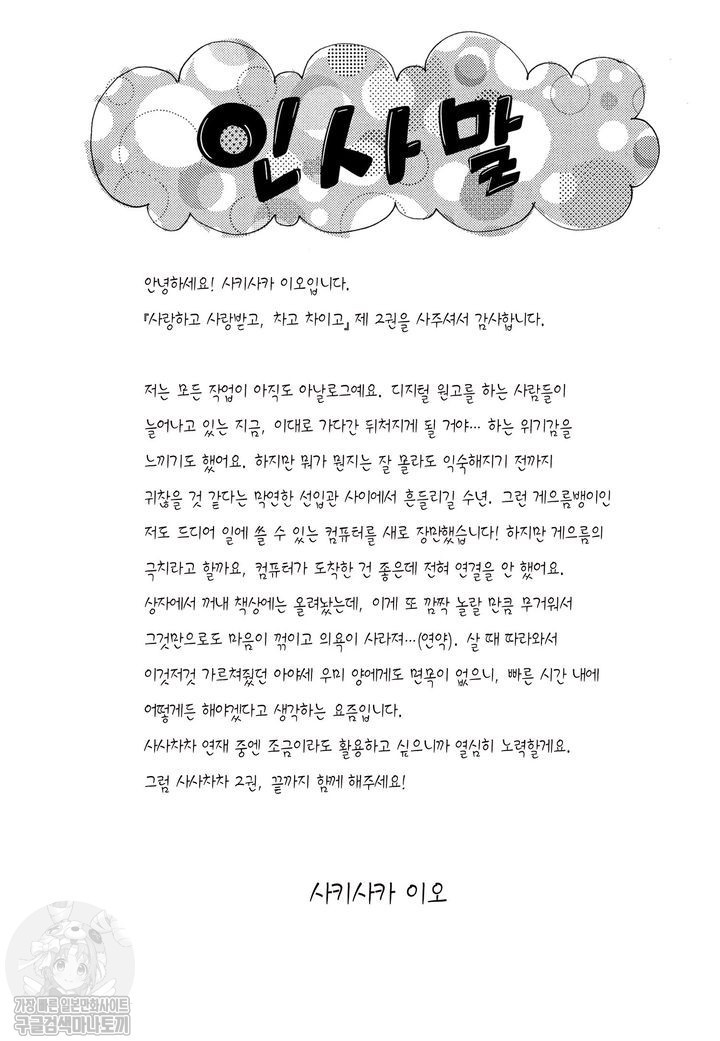 인사말
안녕하세요! 사키사카 이오입니다.
『사랑하고 사랑받고, 차고 차이고』 제 2권을 사주셔서 감사합니다.
저는 모든 작업이 아직도 아날로그예요. 디지털 원고를 하는 사람들이
늘어나고 있는 지금, 이대로 가다간 뒤처지게 될 거야… 하는 위기감을
느끼기도 했어요. 하지만 뭐가 뭔지는 잘 몰라도 익숙해지기 전까지
귀찮을 것 같다는 막연한 선입관 사이에서 흔들리길 수년. 그런 게으름뱅이인
저도 드디어 일에 쓸 수 있는 컴퓨터를 새로 장만했습니다! 하지만 게으름의
극치라고 할까요, 컴퓨터가 도착한 건 좋은데 전혀 연결을 안 했어요.
상자에서 꺼내 책상에는 올려놨는데, 이게 또 깜짝 놀랄 만큼 무거워서
그것만으로도 마음이 꺾이고 의욕이 사라져…(연약). 살 때 따라와서
이것저것 가르쳐줬던 아야세 우미 양에게도 면목이 없으니, 빠른 시간 내에
어떻게든 해야겠다고 생각하는 요즘입니다.
사사차차 연재 중엔 조금이라도 활용하고 싶으니까 열심히 노력할게요.
그럼 사사차차 2권, 끝까지 함께 해주세요!
사키사카 이오
가장 빠른 일본만화사이트
구글검색마나토끼